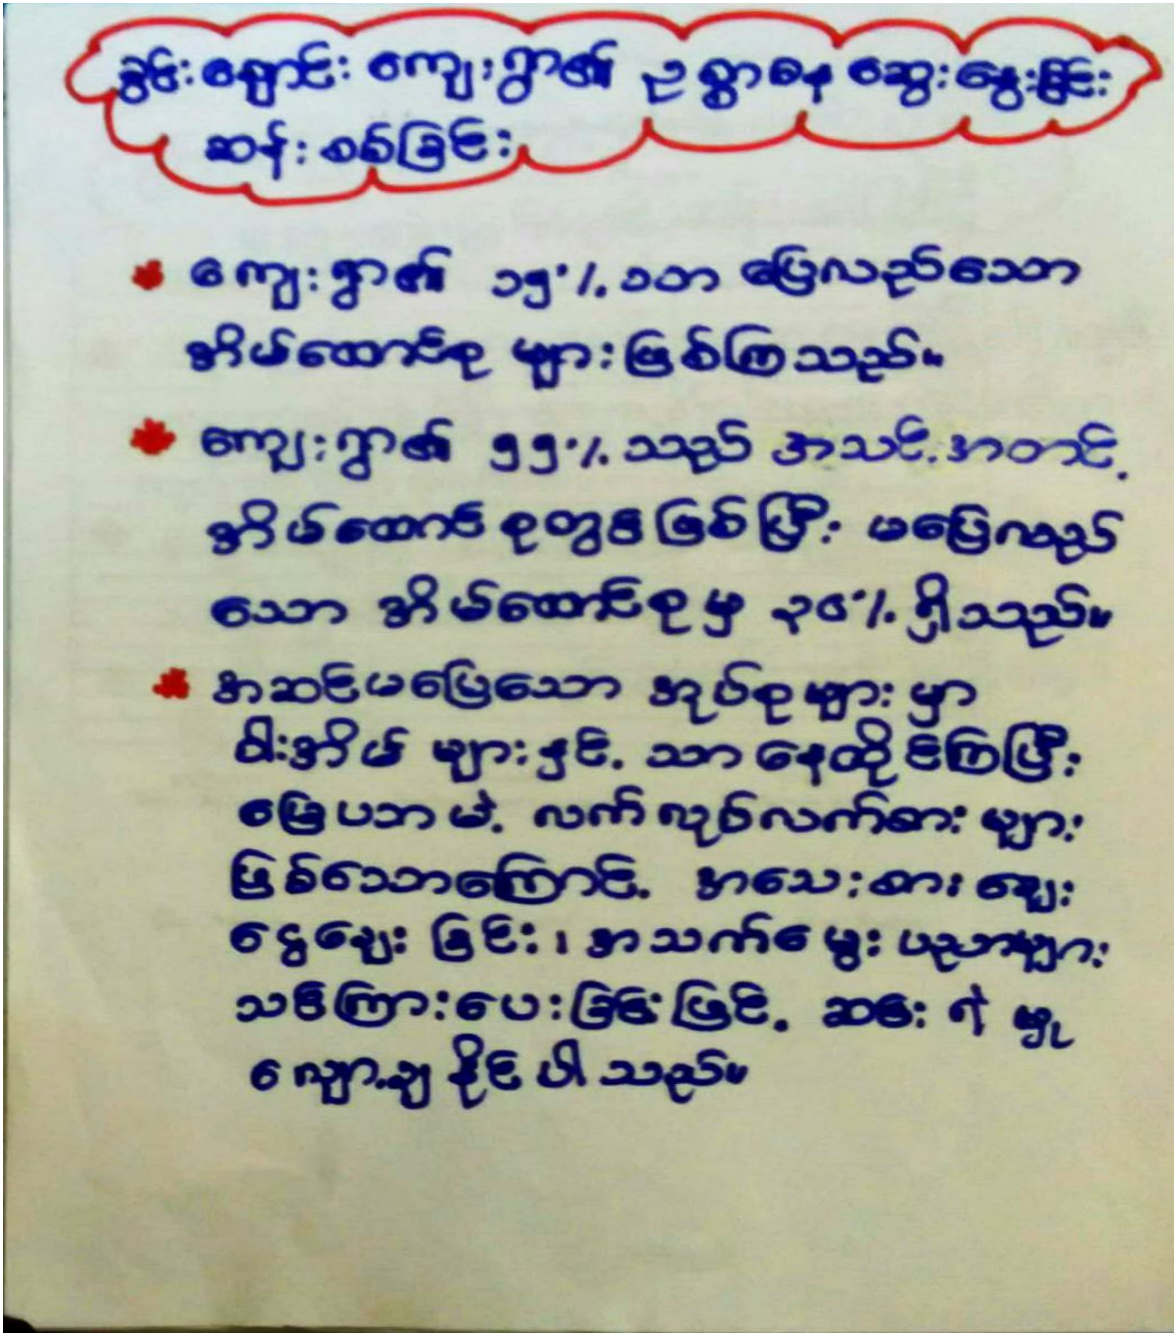 ခွင်းချောင်း ကျေးရွာ၏ ဥစ္စာဓန ဆွေးနွေးခြင်း
ဆန်းစစ်ခြင်း
ကျေးရွာ၏ ၁၅% သာ ပြေလည်သော
အိမ်ထောင်စု များဖြစ်ကြသည်။
ကျေးရွာ၏ ၅၅% သည် အသင့်အတင့်
အိမ်ထောင်စုတွင်ဖြစ်ပြီး မပြေလည်
သော အိမ်ထောင်စုမှ ၃၀% ရှိသည်။
အဆင်မပြေသော အုပ်စုများမှာ
ဝါးအိမ် များနှင့် သာနေထိုင်ကြပြီး
မြေယာမဲ့ လက်လုပ်လက်စား များ
ဖြစ်သောကြောင့် အသေးစားချေး
ငွေချေးခြင်း၊ အသက်မွေးပညာများ
သင်ကြားပေးခြင်းဖြင့် ဆင်းရဲမှု
လျော့ချနိုင်ပါသည်။